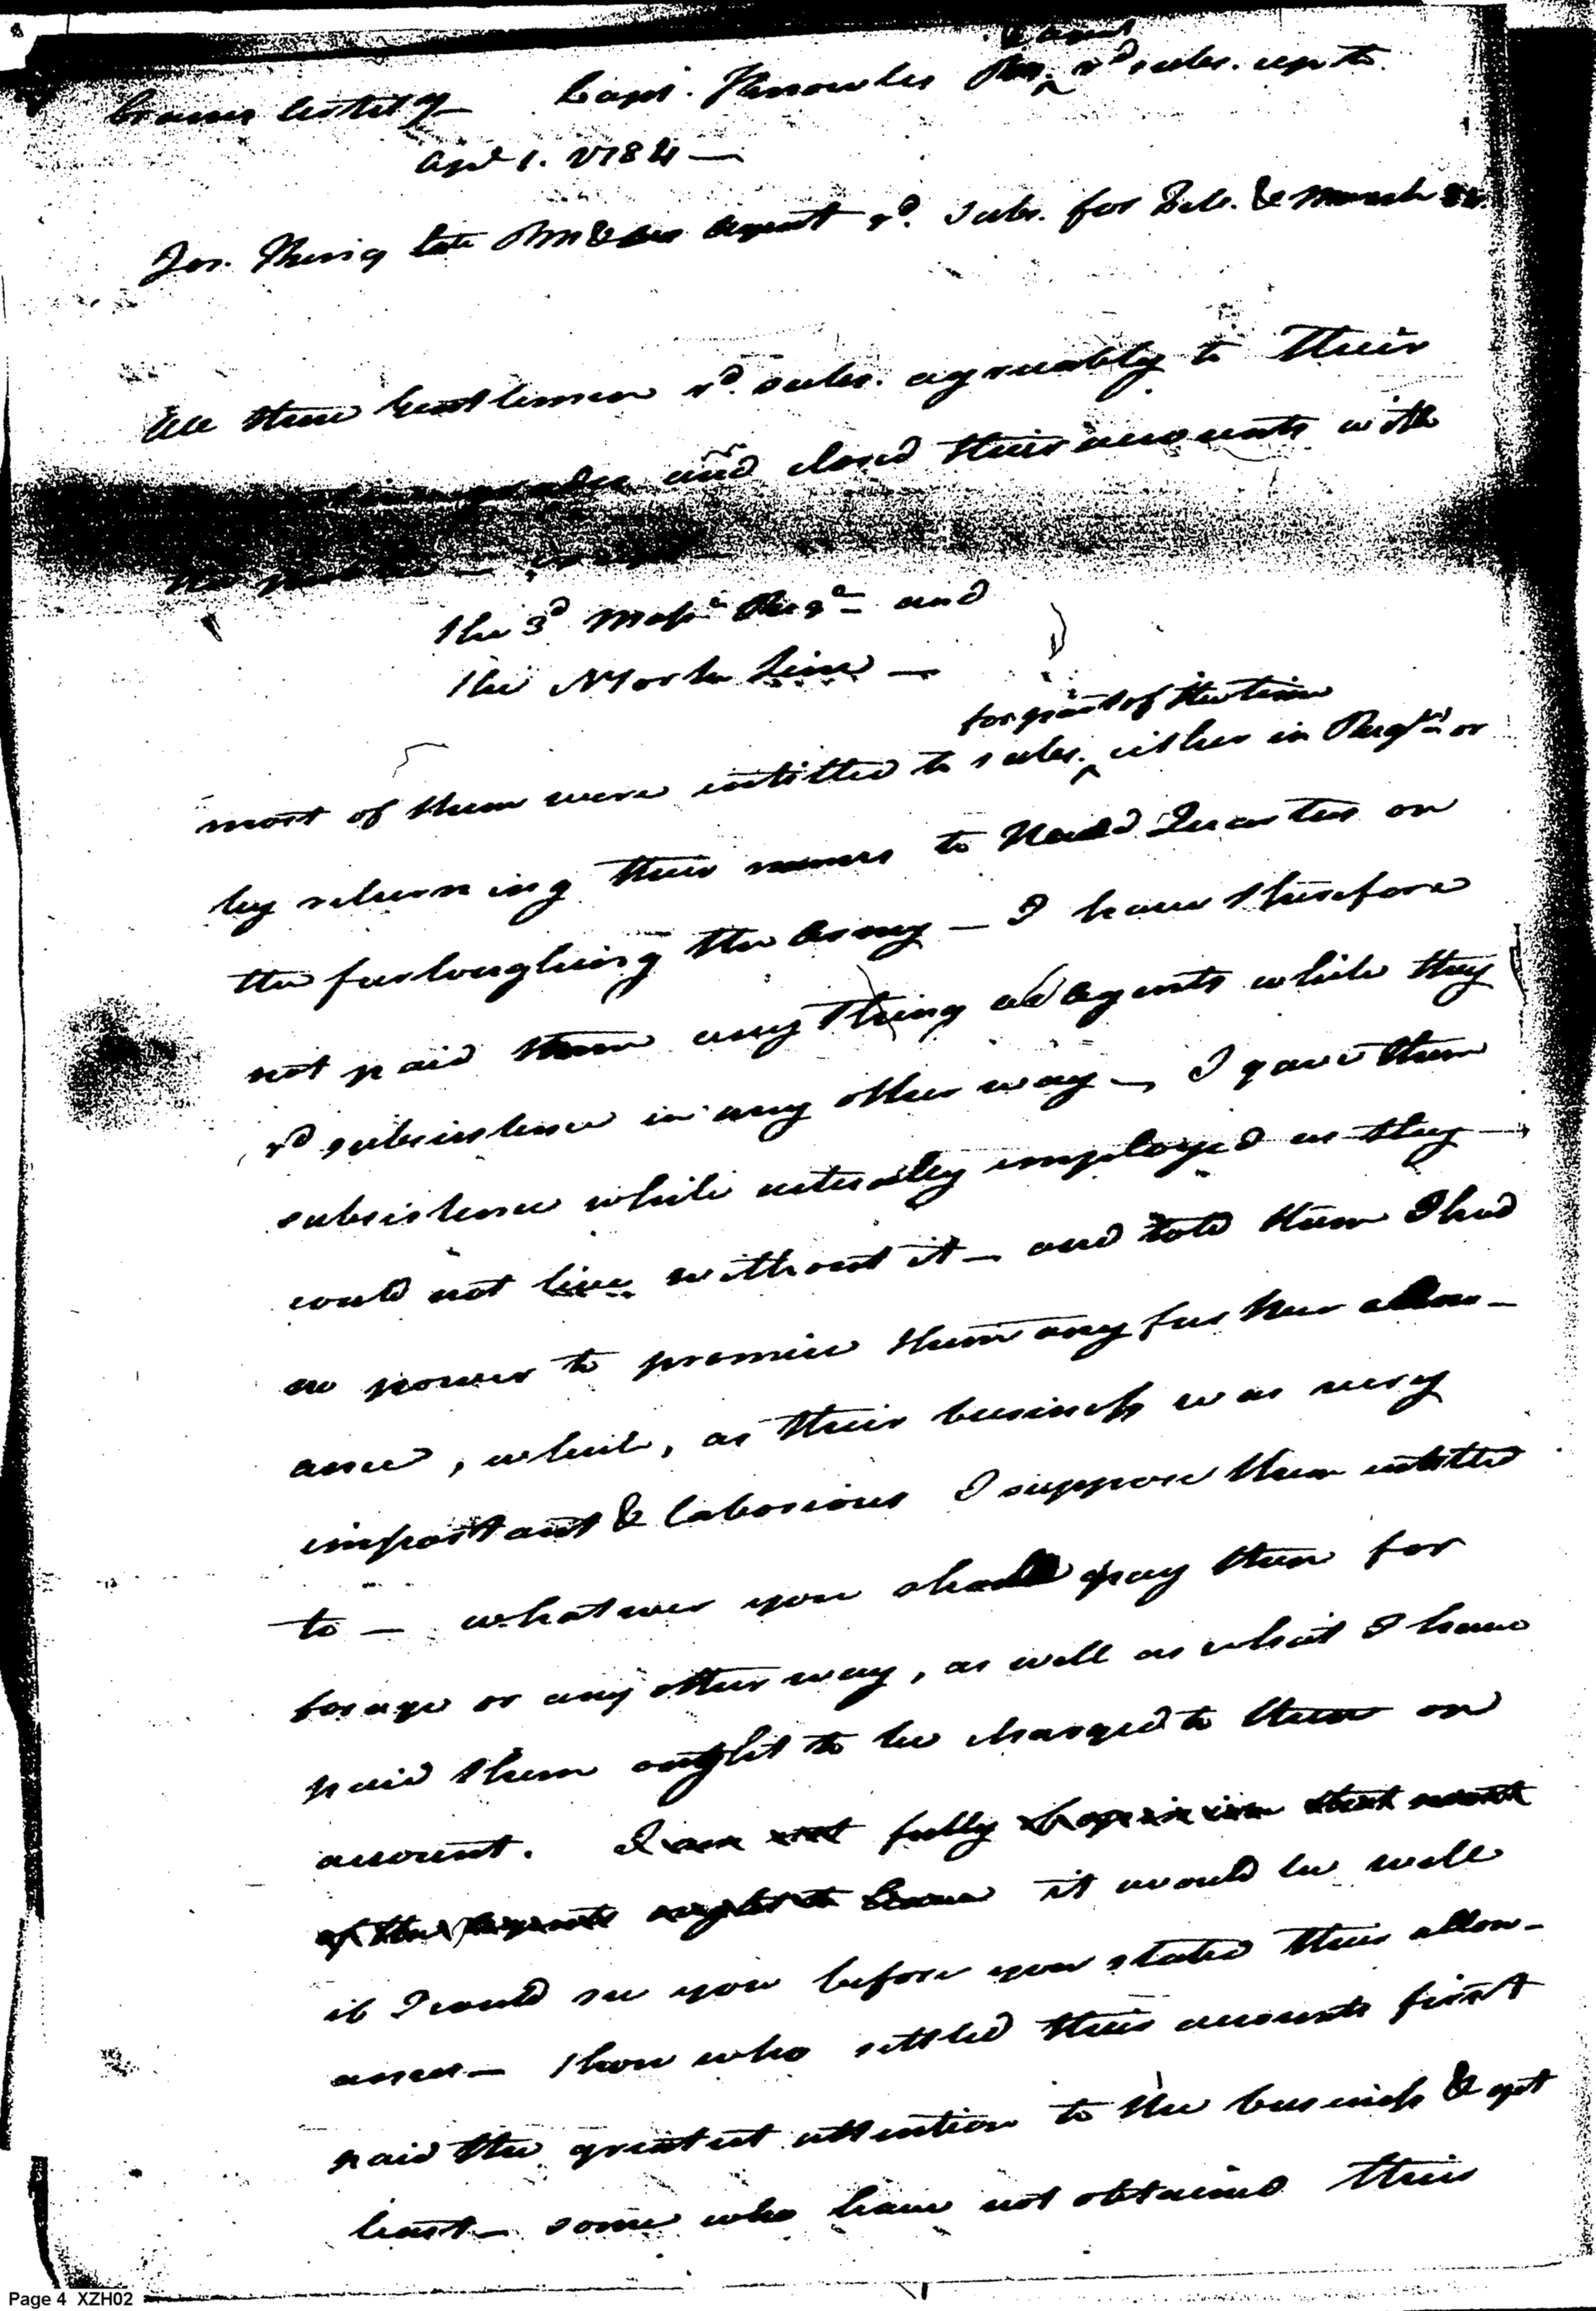 & agent
Capt. Knowles PM. rd subs. up to
Apl 1. 1784 —
Jos. Thring late PM & now agent rd. subs. for Feb. & March 84.
All these Gentlemen rd. subs. agreeably to their
and closed their accounts with
the
the 3d Massa Regt and
the York line —
for part of the time
most of them were intitled to subs. either in Regts or
by returning their names to Head Quarters on
the furloughing the Army — I have therefore
not paid them any thing as agents while they
rd subsistence in any other way — I gave them
subsistence while actually employed as they —
could not live without it — and told them I had
no power to promise them any further allow-
ance, which, as their business was very
important & laborious I suppose them intitled
to — whatever you shall pay them for
forage or any other way, as well as what I have
paid them ought to be charged to them on
account. I am not fully of opinion that most
of the Agents ought to have it would be well
if I could see you before you stated their allow-
ances — those who settled their accounts first
paid the greatest attention to the business & got
least — some who have not obtained their
Page 4 XZH02